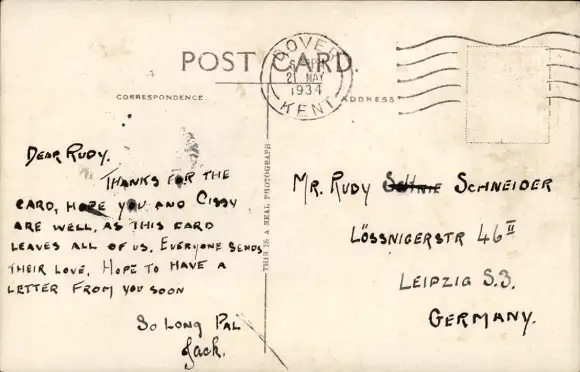 POST CARD.
DOVER
KENT
21 MAY
1934
CORRESPONDENCE.
ADDRESS
THIS IS A REAL PHOTOGRAPH
DEAR RUDY.
THANKS FOR THE
CARD, HOPE YOU AND CISSY
ARE WELL, AS THIS CARD
LEAVES ALL OF US. EVERYONE SENDS
THEIR LOVE. HOPE TO HAVE A
LETTER FROM YOU SOON
SO LONG PAL
Jack.
MR. RUDY SCHNEIDER
LÖSSNIGERSTR 46 II
LEIPZIG S.3.
GERMANY.